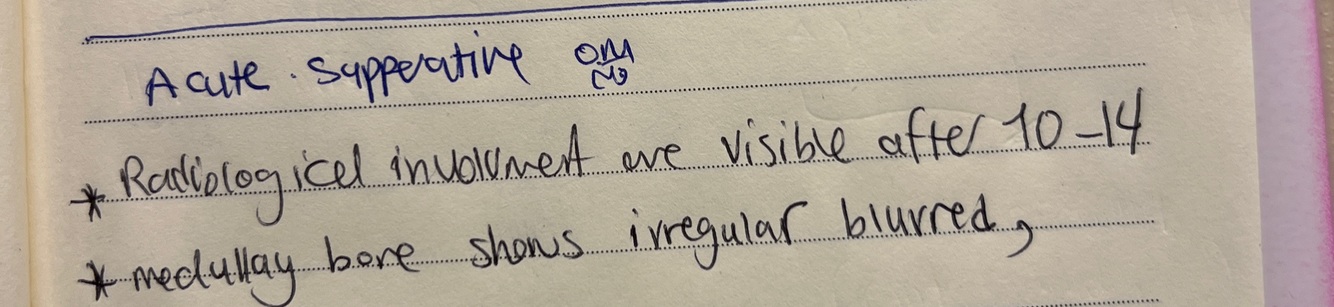 Acute. Supperative OM
* Radiologicel involvment are visible after 10-14
* medullay bone shows irregular blurred,